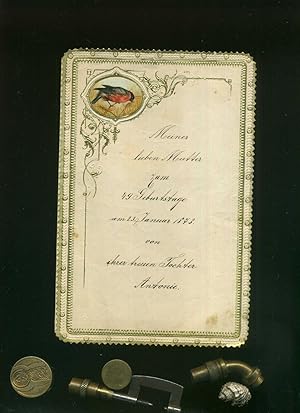 Meiner
lieben Mutter
zum
49 Geburtstage
am 23. Januar 1873.
von
ihrer treuen Tochter
Antonie.